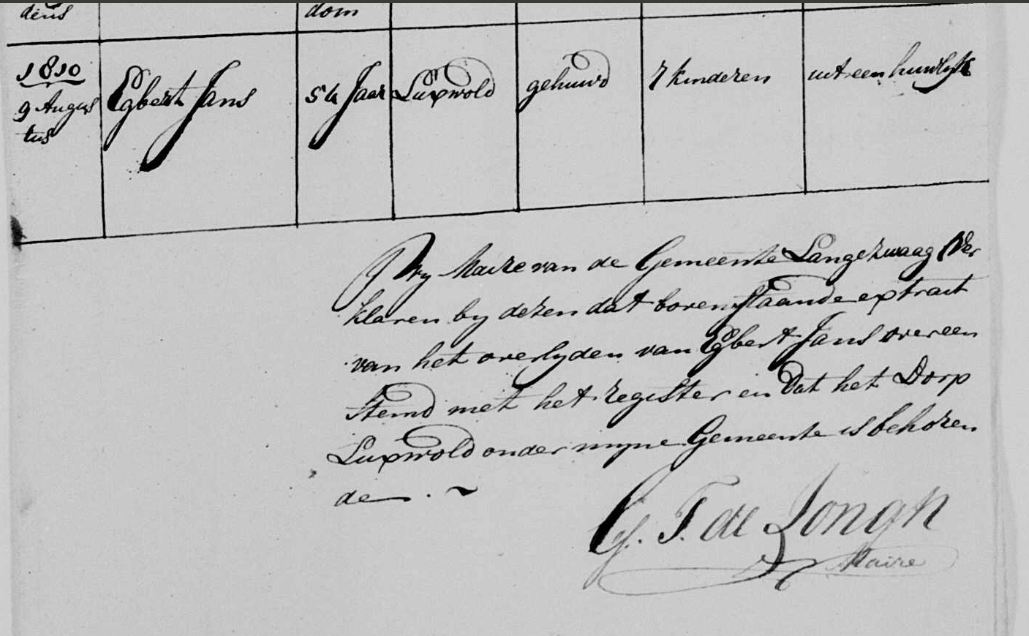 deus dom
1810
9 Augus
tus
Egbert Jans
54 Jaar
Luxwold
gehuwd
7 kinderen
uit een huwlyk
Wy Maire van de Gemeente Langezwaag Ver
klaren by dezen dat bovenstaande extrait
van het overlyden van Egbert Jans overeen
stemd met het register en dat het Dorp
Luxwold onder myne Gemeente is behoren
de.
T. de Jongh
Maire